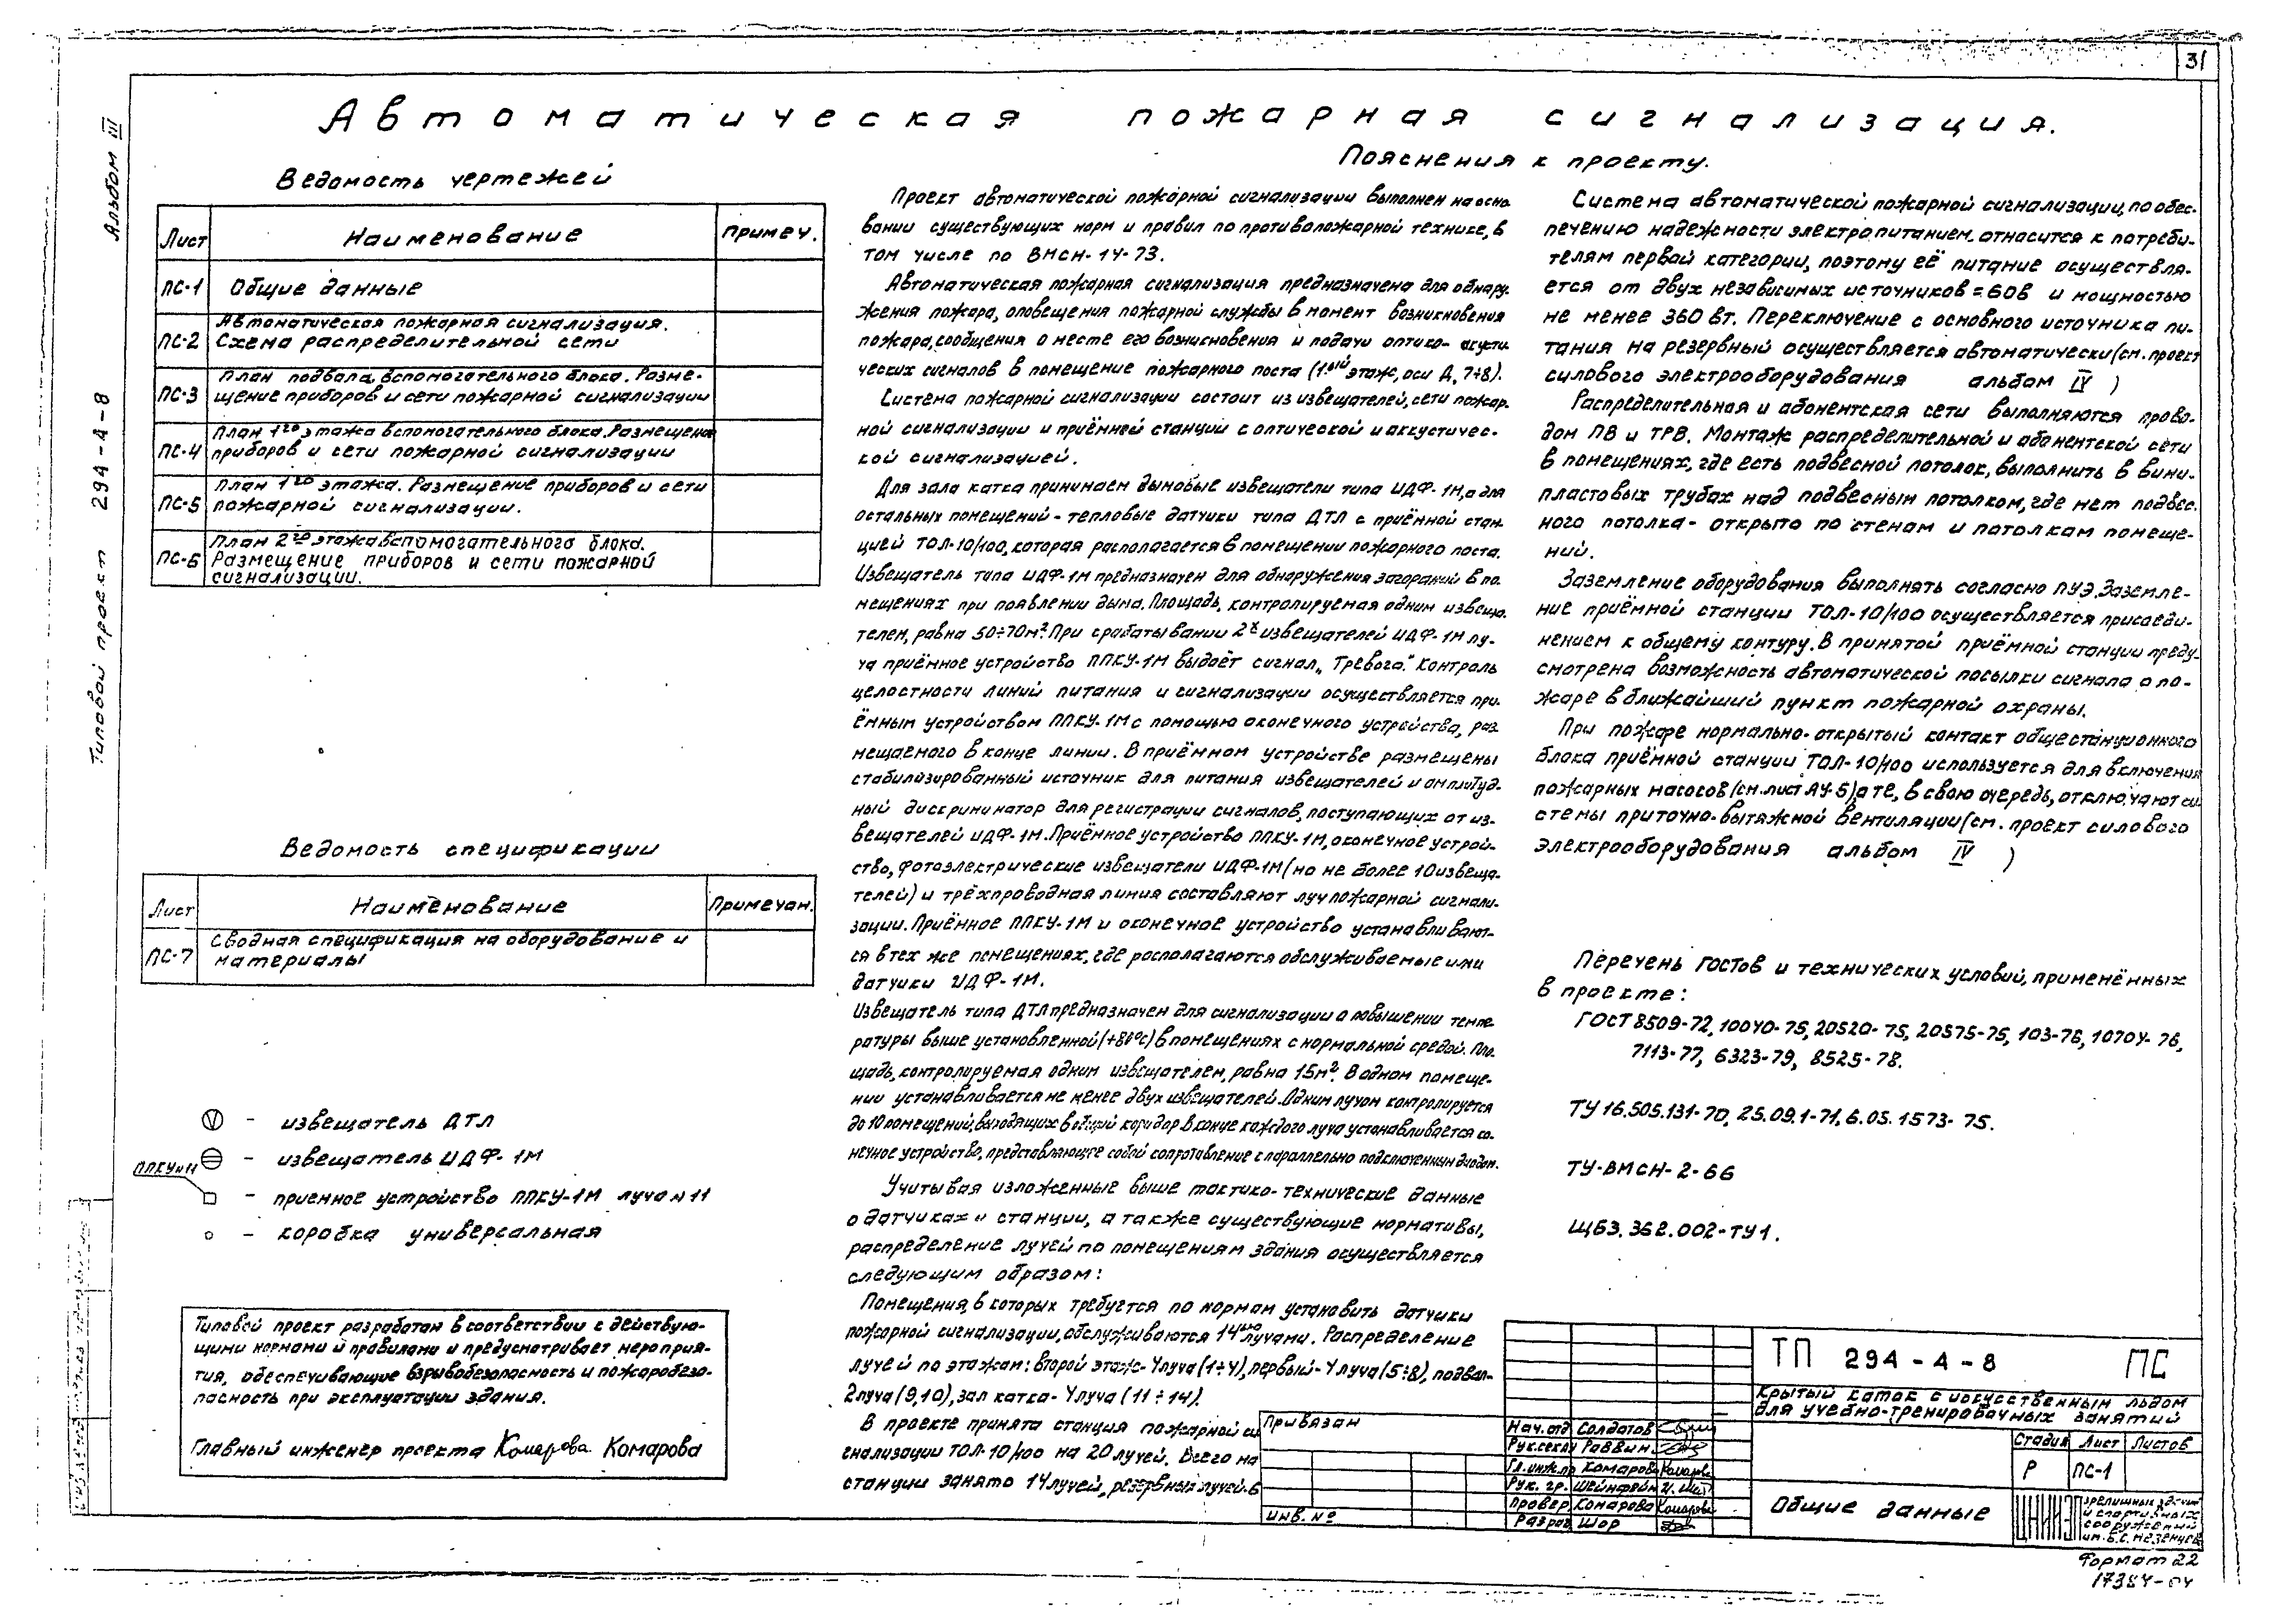 31
Автоматическая пожарная сигнализация.
Альбом III
Типовой проект 294-А-8
Ведомость чертежей
Лист Наименование Примеч.
ПС-1 Общие данные
Автоматическая пожарная сигнализация.
ПС-2 Схема распределительной сети
План подвала, вспомогательного блока. Разме-
ПС-3 щение приборов и сети пожарной сигнализации
План 1го этажа вспомогательного блока. Размещение
ПС-4 приборов и сети пожарной сигнализации
План 1го этажа. Размещение приборов и сети
ПС-5 пожарной сигнализации.
План 2го этажа вспомогательного блока.
ПС-6 Размещение приборов и сети пожарной
сигнализации.
Ведомость спецификации
Лист Наименование Примечан.
Сводная спецификация на оборудование и
ПС-7 материалы
- извещатель ДТЛ
- извещатель ИДФ-1М
ППКУ№11
- приемное устройство ППКУ-1М луча №11
- коробка универсальная
Типовой проект разработан в соответствии с действую-
щими нормами и правилами и предусматривает мероприя-
тия, обеспечивающие взрывобезопасность и пожаробезо-
пасность при эксплуатации здания.
Главный инженер проекта Комарова Комарова
Пояснения к проекту.
Проект автоматической пожарной сигнализации выполнен на осно-
вании существующих норм и правил по противопожарной технике, в
том числе по ВМСН-14-73.
Автоматическая пожарная сигнализация предназначена для обнару-
жения пожара, оповещения пожарной службы в момент возникновения
пожара, сообщения о месте его возникновения и подачи оптико-акусти-
ческих сигналов в помещение пожарного поста (1ый этаж, оси Д, 7÷8).
Система пожарной сигнализации состоит из извещателей, сети пожар-
ной сигнализации и приёмной станции с оптической и аккустичес-
кой сигнализацией.
Для зала катка принимаем дымовые извещатели типа ИДФ-1М, а для
остальных помещений - тепловые датчики типа ДТЛ с приёмной стан-
цией ТОЛ-10/100, которая располагается в помещении пожарного поста.
Извещатель типа ИДФ-1М предназначен для обнаружения загораний в по-
мещениях при появлении дыма. Площадь, контролируемая одним извеща-
телем, равна 50÷70м². При срабатывании 2х извещателей ИДФ-1М лу-
ча приёмное устройство ППКУ-1М выдаёт сигнал „Тревога." Контроль
целостности линий питания и сигнализации осуществляется при-
ёмным устройством ППКУ-1М с помощью оконечного устройства, раз-
мещаемого в конце линии. В приёмном устройстве размещены
стабилизированный источник для питания извещателей и амплитуд-
ный дискриминатор для регистрации сигналов, поступающих от из-
вещателей ИДФ-1М. Приёмное устройство ППКУ-1М, оконечное устрой-
ство, фотоэлектрические извещатели ИДФ-1М (но не более 10 извеща-
телей) и трёхпроводная линия составляют луч пожарной сигнали-
зации. Приёмное ППКУ-1М и оконечное устройство устанавливают-
ся в тех же помещениях, где располагаются обслуживаемые ими
датчики ИДФ-1М.
Извещатель типа ДТЛ предназначен для сигнализации о повышении темпе-
ратуры выше установленной в помещениях с нормальной средой. Пло-
щадь, контролируемая одним извещателем, равна 15м². В одном помеще-
нии устанавливается не менее двух извещателей. Одним лучом контролируется
до 10 помещений, выходящих в общий коридор. В конце каждого луча устанавливается ко-
нечное устройство, представляющее собой сопротивление с параллельно подключенным диодом.
Учитывая изложенные выше тактико-технические данные
о датчиках и станции, а также существующие нормативы,
распределение лучей по помещениям здания осуществляется
следующим образом:
Помещения, в которых требуется по нормам установить датчики
пожарной сигнализации, обслуживаются 14ью лучами. Распределение
лучей по этажам: второй этаж-4луча (1÷4), первый-4луча (5÷8), подвал-
2луча (9,10), зал катка-4луча (11÷14).
В проекте принята станция пожарной си-
гнализации ТОЛ-10/100 на 20 лучей. Всего на
станции занято 14 лучей, резервных лучей-6
Система автоматической пожарной сигнализации, по обес-
печению надежности электропитанием, относится к потреби-
телям первой категории, поэтому её питание осуществля-
ется от двух независимых источников = 60в и мощностью
не менее 360 вт. Переключение с основного источника пи-
тания на резервный осуществляется автоматически (см. проект
силового электрооборудования альбом IV )
Распределительная и абонентская сети выполняются прово-
дом ПВ и ТРВ. Монтаж распределительной и абонентской сети
в помещениях, где есть подвесной потолок, выполнить в вини-
пластовых трубах над подвесным потолком, где нет подвес-
ного потолка - открыто по стенам и потолкам помеще-
ний.
Заземление оборудования выполнять согласно ПУЭ. Заземле-
ние приёмной станции ТОЛ-10/100 осуществляется присоеди-
нением к общему контуру. В принятой приёмной станции преду-
смотрена возможность автоматической посылки сигнала о по-
жаре в ближайший пункт пожарной охраны.
При пожаре нормально-открытый контакт общестанционного
блока приёмной станции ТОЛ-10/100 используется для включения
пожарных насосов (см. лист АУ-5) а те, в свою очередь, отключают си-
стемы приточно-вытяжной вентиляции (см. проект силового
электрооборудования альбом IV )
Перечень гостов и технических условий, применённых
в проекте:
ГОСТ 8509-72, 10040-75, 20520-75, 20575-75, 103-76, 10704-76,
7113-77, 6323-79, 8525-78.
ТУ 16.505.131-70, 25.09.1-71, 6.05.1573-75.
ТУ-ВМСН-2-66
ЩБ3.362.002-ТУ1.
Привязан
Инв. №
Нач. отд Солдатов
Рук. секц Раввин
Гл. инж. пр Комарова Комарова
Рук. гр. Шейнфейн
Провер Комарова Комарова
Разраб Шор
ТП 294-А-8 ПС
Крытый каток с искусственным льдом
для учебно-тренировочных занятий
Стадия Лист Листов
Р ПС-1
Общие данные
ЦНИИЭП зрелищных зданий
и спортивных
сооружений
им. Б.С. Мезенцева
Формат 22
17384-04